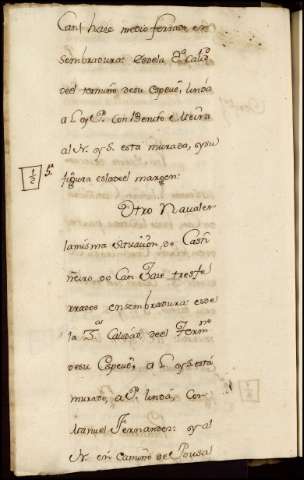 Can.l haze medio ferrado en
sembradura: es de la 3.ª calid.d
del termino de su Especie, linda
a L. con Benito
al N. y S. esta murada, y su
figura es la del margen:
1/2 3.ª
Otro Naval en
la misma Situación, de Casti
ñeiro do Can, haze tres fe
rrados en sembradura: es de
la 3.ª Calidad, del Term.no
de su Especie, a L. y S. está
murado, a P. linda, Con
Manuel Fernandez: y al
N. en Camino de Pousa